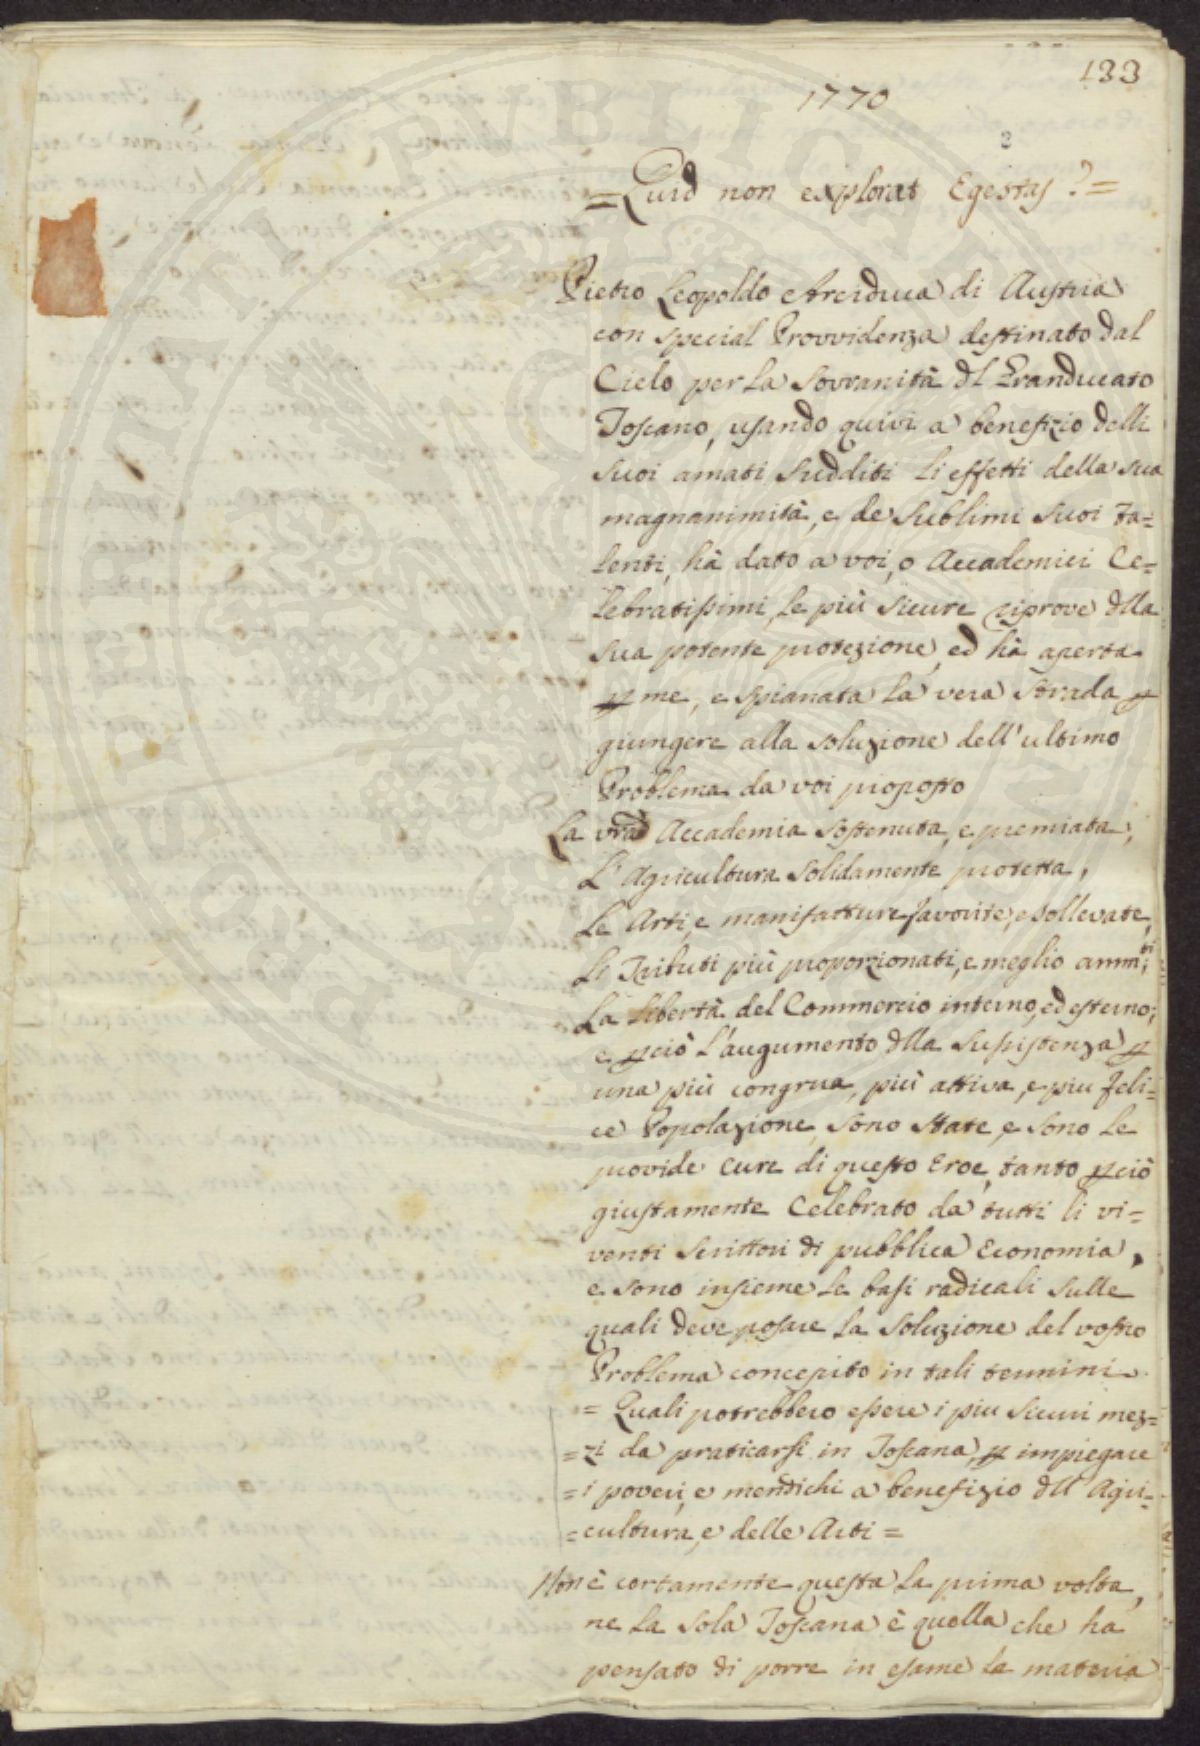 133
1770
2
=Quid non explorat Egestas?=
Pietro Leopoldo Arciduca di Austria
con special Provvidenza destinato dal
Cielo per la Sovranità dl Granducato
Toscano, usando quivi a benefizio delli
suoi amati sudditi li effetti della sua
magnanimità, e de sublimi suoi ta=
lenti, hà dato a voi, o Accademici Ce=
lebratissimi, le più sicure riprove dlla
sua potente protezione, ed hà aperta
p me, e spianata la vera strada p
giungere alla soluzione dell'ultimo
Problema da voi proposto
La vra Accademia sostenuta, e premiata,
L'Agricultura solidamente protetta,
Le Arti, e manifatture favorite, e sollevate,
Li Tributi più proporzionati, e meglio ammti;
La libertà del Commercio interno, ed esterno;
e pciò l'augumento dlla sussistenza p
una più congrua, più attiva, e piu feli=
ce Popolazione, sono state, e sono le
provide cure di questo Eroe, tanto pciò
giustamente celebrato da tutti li vi=
venti scrittori di pubblica Economia,
e sono insieme le basi radicali sulle
quali deve posare la soluzione del vostro
Problema concepito in tali termini
= Quali potrebbero essere i piu sicuri mez=
=zi da praticarsi in Toscana, p impiegare
=i poveri, e mendichi a benefizio dll'Agri=
=cultura, e delle Arti=
Non è certamente questa la prima volta,
ne la sola Toscana è quella che ha
pensato di porre in esame la materia
PUBLICAE